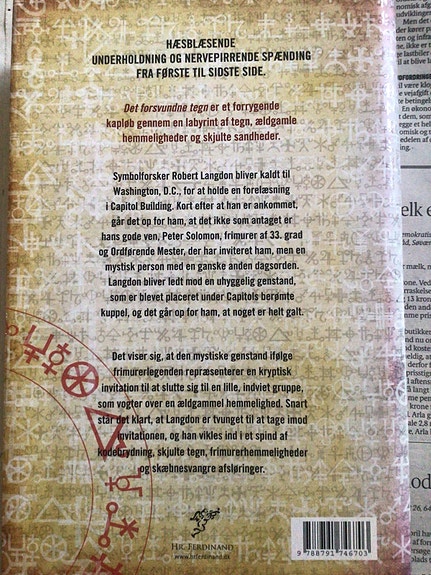 HÆSBLÆSENDE
UNDERHOLDNING OG NERVEPIRRENDE SPÆNDING
FRA FØRSTE TIL SIDSTE SIDE.
Det forsvundne tegn er et forrygende
kapløb gennem en labyrint af tegn, ældgamle
hemmeligheder og skjulte sandheder.
Symbolforsker Robert Langdon bliver kaldt til
Washington, D.C., for at holde en forelæsning
i Capitol Building. Kort efter at han er ankommet,
går det op for ham, at det ikke som antaget er
hans gode ven, Peter Solomon, frimurer af 33. grad
og Ordførende Mester, der har inviteret ham, men en
mystisk person med en ganske anden dagsorden.
Langdon bliver ledt mod en uhyggelig genstand,
som er blevet placeret under Capitols berømte
kuppel, og det går op for ham, at noget er helt galt.
Det viser sig, at den mystiske genstand ifølge
frimurerlegenden repræsenterer en kryptisk
invitation til at slutte sig til en lille, indviet gruppe,
som vogter over en ældgammel hemmelighed. Snart
står det klart, at Langdon er tvunget til at tage imod
invitationen, og han vikles ind i et spind af
kodebrydning, skjulte tegn, frimurerhemmeligheder
og skæbnesvangre afsløringer.
HR. FERDINAND
www.hrferdinand.dk
9 788791 746703